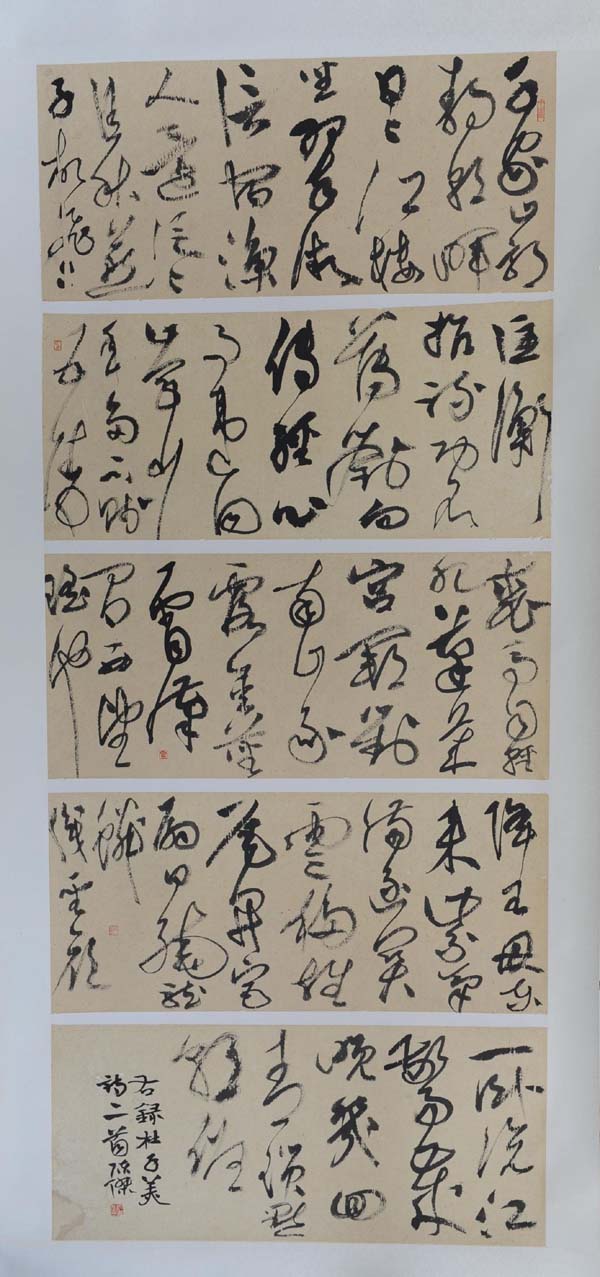 千家山郭
静朝暉
日日江樓
坐翠微
信宿漁
人還泛泛
清秋燕
子故飛飛
匡衡
抗疏功名
薄劉向
傳經心
事違同
學少
年多不賤
五陵
裘馬自輕
肥蓬萊
宮闕對
南山承
露金莖
霄漢
間西望
瑤池
降王母東
来紫氣
滿函關
雲移雉
尾開宮
扇日繞龍
鱗
識聖顏
一卧滄江
驚歲
晚幾回
青瑣點
朝班
右録杜子美
詩二首